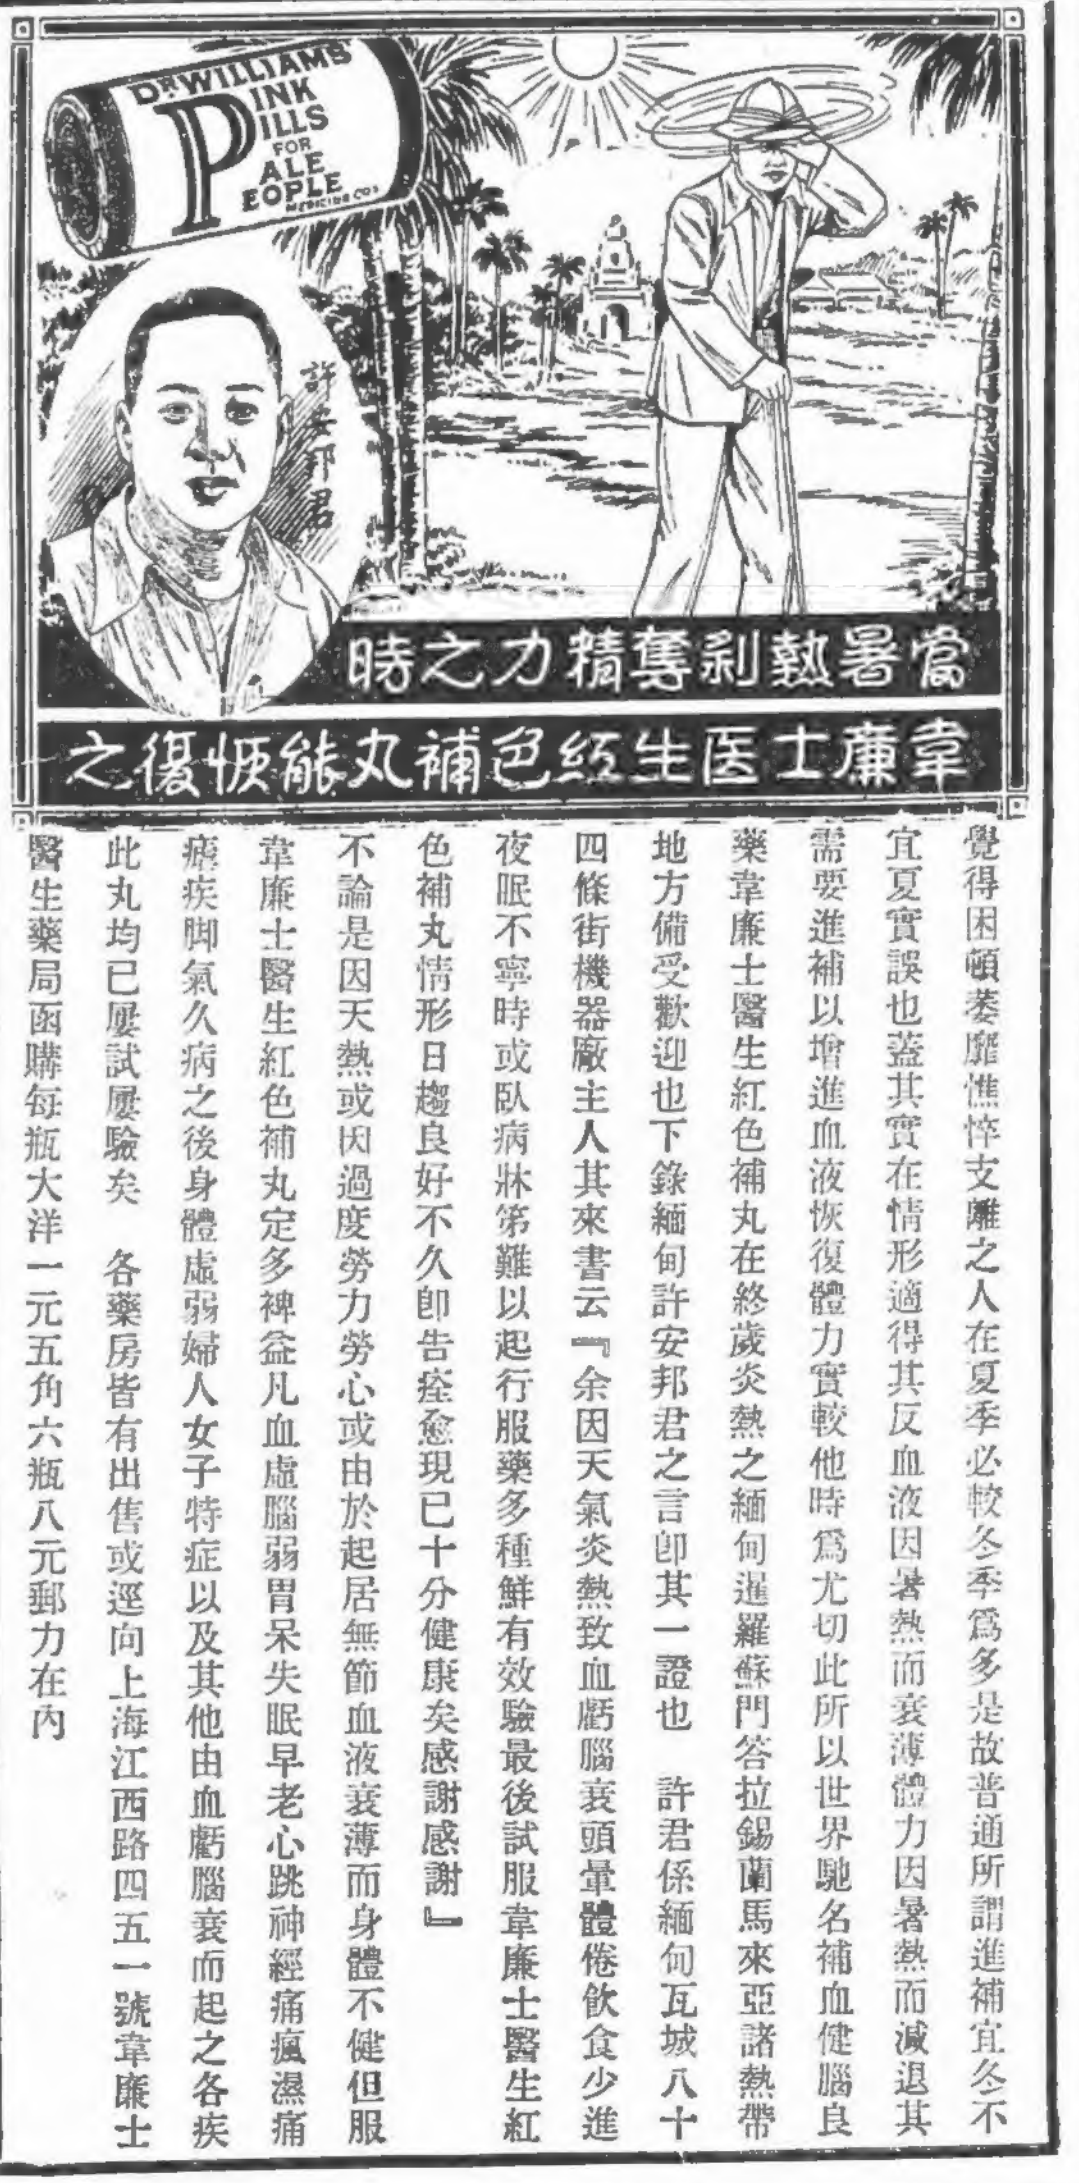 DR WILLIAMS'
PINK
PILLS
FOR
PALE
PEOPLE
MEDICINE CO.
許安邦君
當暑熱剥奪精力之時
韋廉士医生红色補丸能恢復之
覺得困頓萎靡憔悴支離之人在夏季必較冬季爲多是故普通所謂進補宜冬不
宜夏實誤也蓋其實在情形適得其反血液因暑熱而衰薄體力因暑熱而減退其
需要進補以增進血液恢復體力實較他時爲尤切此所以世界馳名補血健腦良
藥韋廉士醫生紅色補丸在終歲炎熱之緬甸暹羅蘇門答拉錫蘭馬來亞諸熱帶
地方備受歡迎也下錄緬甸許安邦君之言卽其一證也　許君係緬甸瓦城八十
四條街機器廠主人其來書云『余因天氣炎熱致血虧腦衰頭暈體倦飲食少進
夜眠不寧時或臥病牀第難以起行服藥多種鮮有效驗最後試服韋廉士醫生紅
色補丸情形日趨良好不久卽告痊愈現已十分健康矣感謝感謝』
不論是因天熱或因過度勞力勞心或由於起居無節血液衰薄而身體不健但服
韋廉士醫生紅色補丸定多裨益凡血虛腦弱胃呆失眠早老心跳神經痛瘋濕痛
瘧疾脚氣久病之後身體虛弱婦人女子特症以及其他由血虧腦衰而起之各疾
此丸均已屢試屢驗矣　各藥房皆有出售或逕向上海江西路四五一號韋廉士
醫生藥局函購每瓶大洋一元五角六瓶八元郵力在內